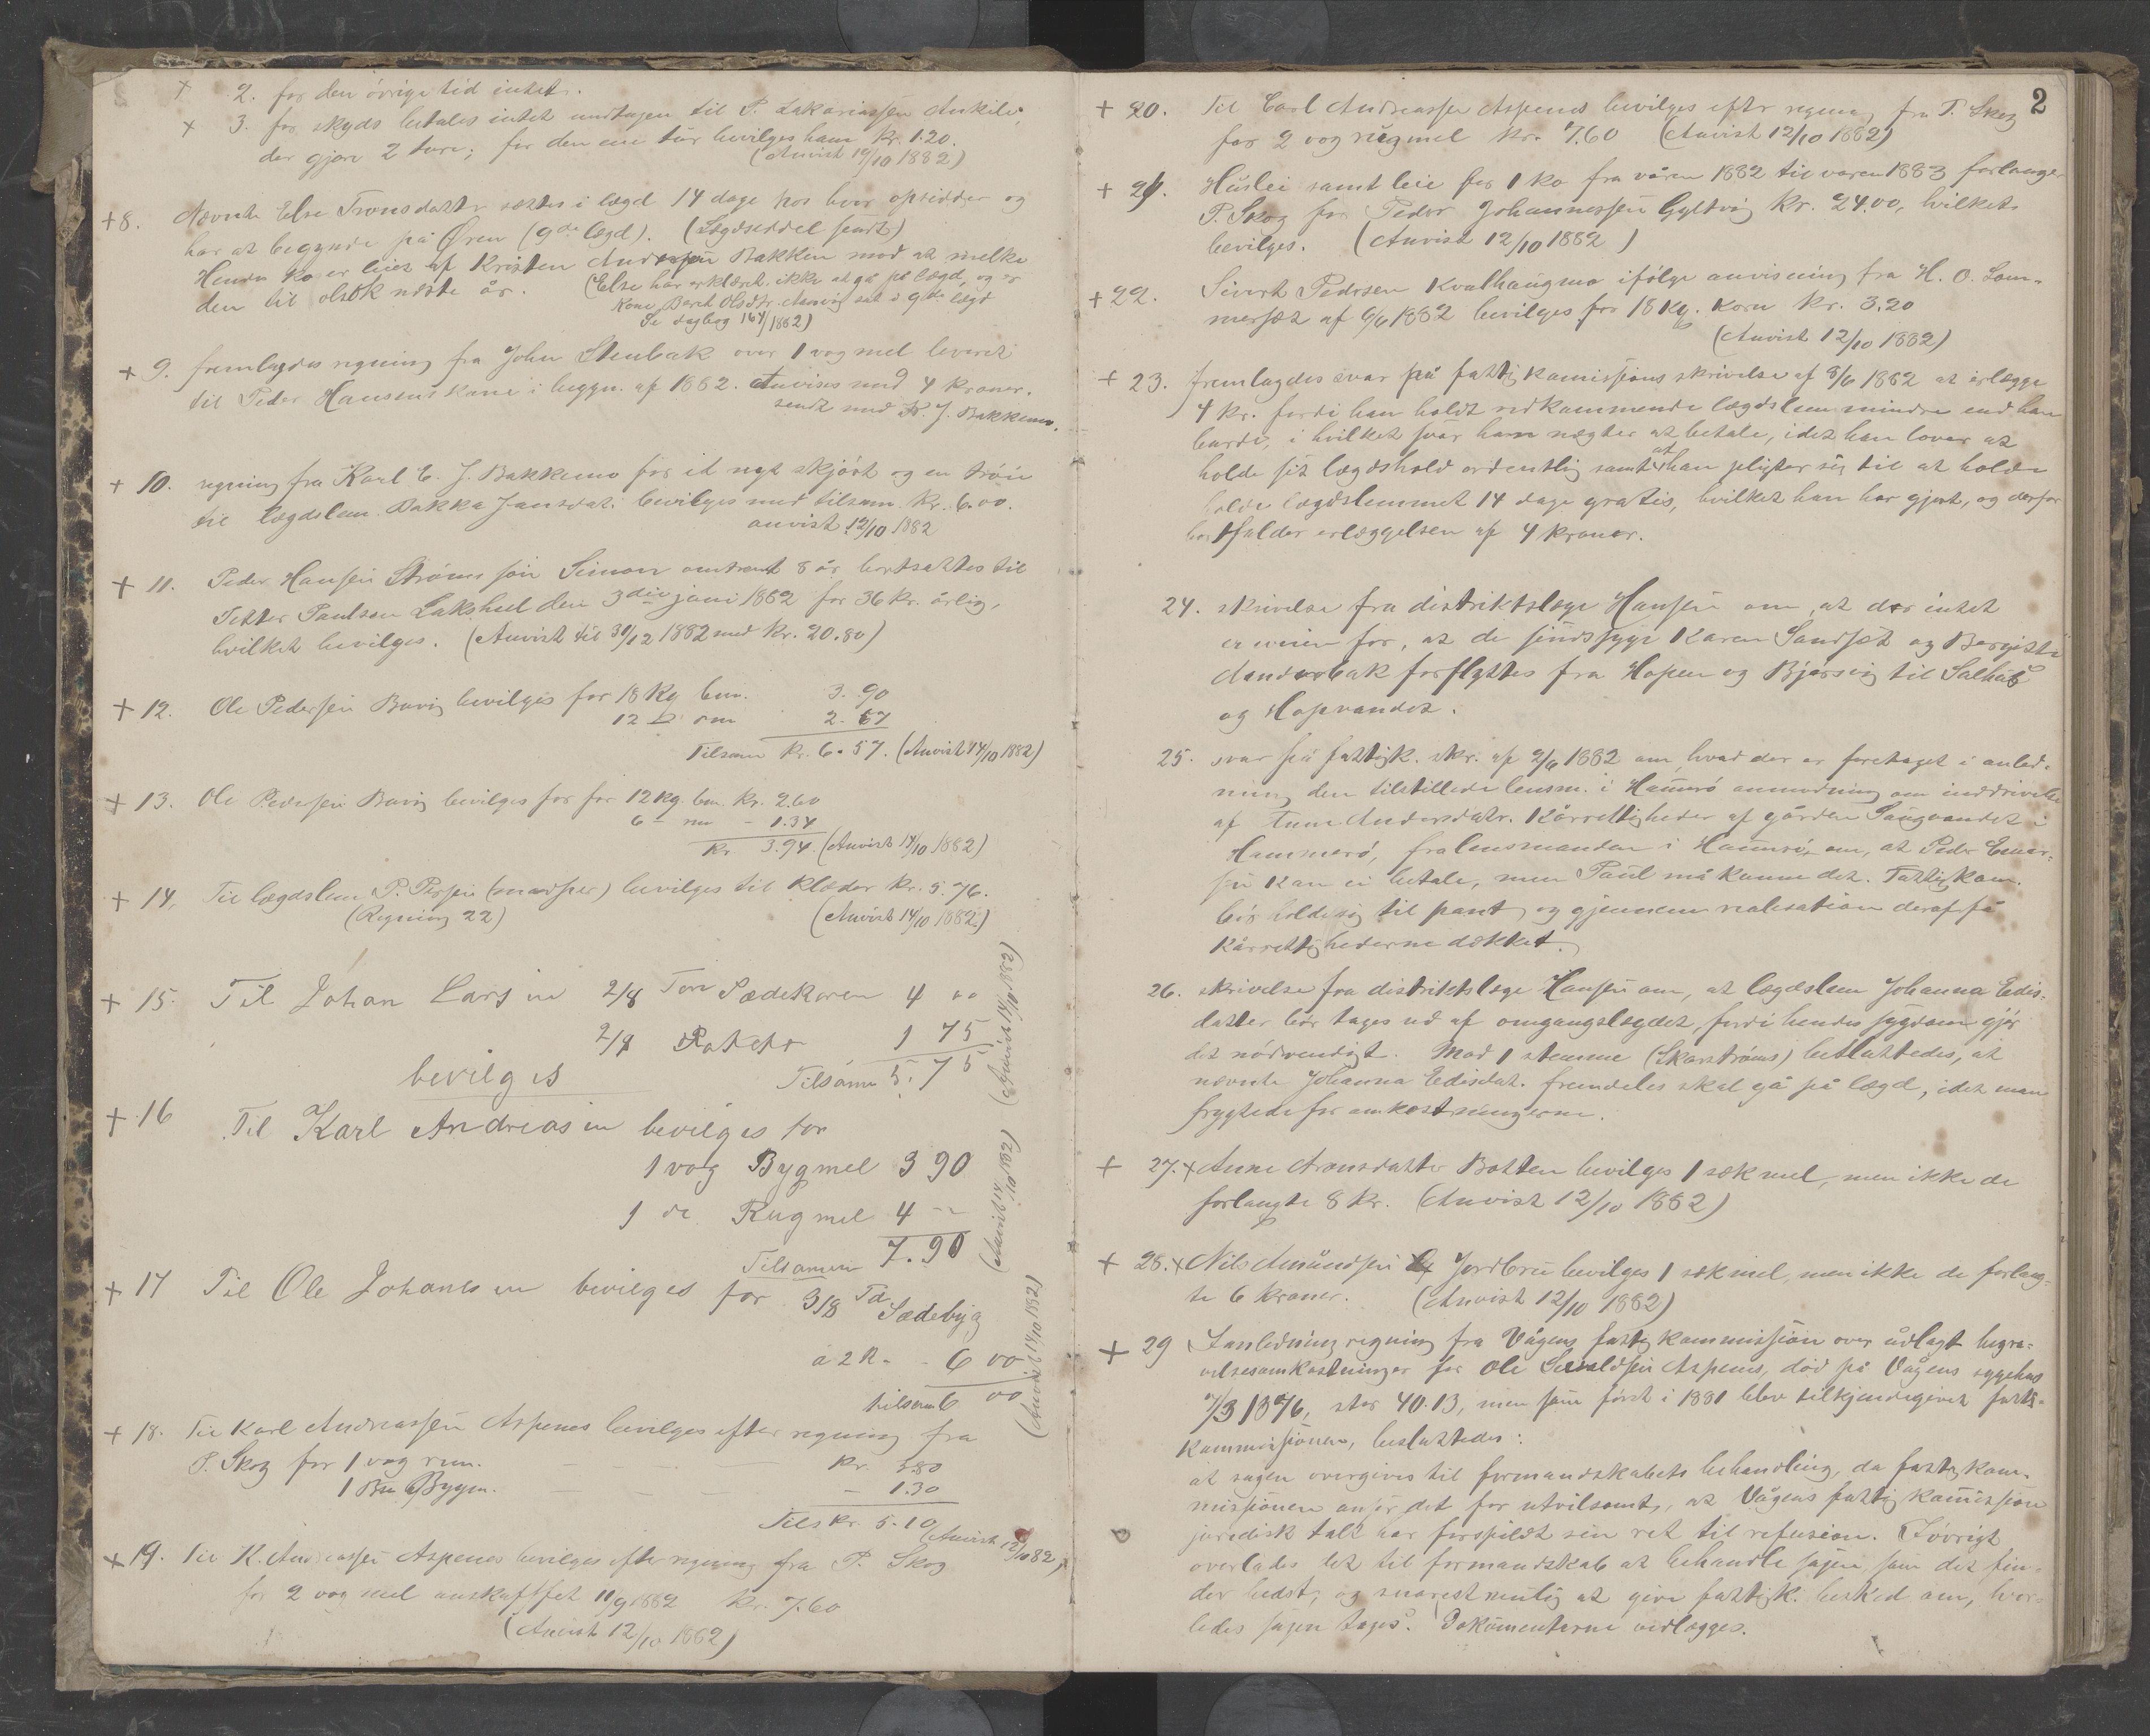 + 2. for den övrige tid intet.
+ 3. for skyds betales intet undtagen til P. Zakariassen Ankile,
der gjore 2 ture; for den ene tur bevilges ham kr. 1.20.
(Anvist 14/10 1882)
+8. Nævnte Else Tronsdatter sættes i lægd 14 dage hos hver opsidder og
har at begynde på Ören (9de lægd). (Lægdseddel sendt)
Hendes ko er leiet af Kristen Andersen Bakken mod at melke
den til olsok næste år. (Else har erklæret ikke at gå på lægd, og er
Kone Berit Olsdtr. sat i 9de lægd
Se dagbog 164/1882)
+ 9. fremlagdes regning fra John Stenbak over 1 vog mel leveret
til Peder Hansens kone i beggn. af 1882. Anvises med 4 kroner.
sendt med K. J. Bakkemo.
+ 10. regning fra Karl E. J. Bakkemo for et nyt skjört og en tröie
til lægdslem Bakka Jansdat. bevilges med tilsam. kr. 6.00.
anvist 12/10 1882
+ 11. Peder Hansen Ströms sön Simon omtrent 8 år bortsattes til
Petter Paulsen Lakshul den 3die juni 1882 for 36 kr. årlig,
hvilket bevilges. (Anvist til 31/12 1882 med kr. 20.80)
+ 12. Ole Pedersen Buvig bevilges for 18 kg bm. 3.90
12 - rm 2.67
Tilsam kr. 6.57. (Anvist 14/10 1882)
+ 13. Ole Pedersen Buvig bevilges for for 12 kg. bm. kr. 2.60
6 - rm - 1.34
kr 3.94. (Anvist 14/10 1882)
+ 14. Til lægdslem P. Persen bevilges til klæder kr. 5.76.
(Regning 22) (Anvist 14/10 1882.)
+ 15. Til Johan Larsen 2/8 Tön Sædekoren 4 00
2/8 Potet 1 75
bevilges Tilsam 5.75 (Anvist 14/10 1882)
+ 16 Til Karl Andreasen bevilges for
1 vog Bygmel 3 90
1 do Rugmel 4 --
Tilsamen 7.90 (Anvist 14/10 1882)
+ 17 Til Ole Johansen bevilges for 3/8 Td Sædebyg
a 2 K. - 6 00
tilsam 6 00 (Anvist 14/10 1882)
+ 18. Til Karl Andreassen Aspenes bevilges efter regning fra
P. Skog for 1 vog rm. - - - kr. 3.80
1 Bygm. - - - - 1.30
Tils kr. 5.10 (Anvist 12/10 82)
+ 19. Til K. Andreassen Aspenes bevilges efter regning fra P. Skog
for 2 vog mel anskaffet 11/9 1882 kr. 7.60
(Anvist 12/10 1882)
2
+ 20. Til Carl Andreassen Aspenes bevilges efter regning fra P. Skog
for 2 vog rugmel kr. 7.60 (Anvist 12/10 1882)
+ 21. Husleie samt leie for 1 ko fra våren 1882 til våren 1883 forlanger
P. Skog for Peder Johannessen Gyltvig kr. 24.00, hvilket
bevilges. (Anvist 12/10 1882)
+ 22. Sivert Pedersen Kvalhaugmo ifölge anvisning fra H. O. Som-
merset af 6/6 1882 bevilges for 18 kg. korn kr. 3.20
(Anvist 12/10 1882)
+ 23. fremlagdes svar på fattigkomissions skrivelse af 8/6 1882 at erlægge
4 kr. fordi han holdt vedkommende lægdslem mindre end han
burde, i hvilket svar han nægter at betale, idet han lover at
holde sit lægdshold ordentlig samt at han pligter sig til at holde
holde lægdslemmet 14 dage gratis, hvilket han har gjort, og derfor
bortfalder erlæggelsen af 4 kroner.
24. skrivelse fra distriktslæge Hansen om, at der intet
er iveien for, at de sindssyge Karen Sandset og Bergitte
Andersbak forflyttes fra Hopen og Bjørsvig til Salhus
og Hopvandet.
25. svar på fattigk. skr. af 2/6 1882 om, hvad der er foretaget i anled-
ning den tilstillede lensm. i Hamerö anmodning om inddrivelse
af Anne Andersdatr. kårrettigheder af gården Saugvandet i
Hammerö, fra lensmanden i Hamerö om, at Peder Einar-
sen kan ei betale, men Paul må kunne det. Fattigkom.
bör holde sig til pant og gjennem realisation deraf få
kårrettighederne dækket.
26. skrivelse fra distriktslæge Hansen om, at lægdslem Johanna Edis-
datter bör tages ud af omgangslægdet, fordi hendes sygdom gjör
det nödvendigt. Mod 1 stemme (Skarströms) besluttedes, at
nævnte Johanna Edisdat. fremdeles skal gå på lægd, idet man
frygtede for omkostningerne.
+ 27. + Anne Aronsdatter Botten bevilges 1 sæk mel, men ikke de
forlangte 8 kr. (Anvist 12/10 1882)
+ 28. + Nils Amundsen Jordbru bevilges 1 sæk mel, men ikke de forlang-
te 6 kroner. (Anvist 12/10 1882)
+ 29 I anledning regning fra Vågens fattigkommission over udlagt begra-
velsesomkostninger for Ole Aspenes, död på Vågens sygehus
7/3 1876, stor 40.13, men som først i 1881 blev tilkjendegivet fattig-
kommissionen, besluttedes:
at sagen overgives til formandskabets behandling, da fattigkom-
missionen anser det for utvilsomt, at Vågens fattigkomission
juridisk talt har forspildt sin ret til refusion. Iövrigt
overlades det til formandskab at behandle sagen som det fin-
der bedst, og snarest mulig at give fattigk. besked om, hvor-
ledes sagen tages. Dokumenterne vedlægges.